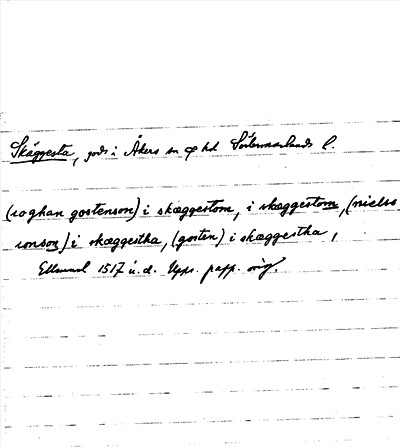 Skäggesta, gods i Åkers sn o hd Södermanlands l.
(ioghan gostenson) i skæggestom, i skæggestom, (nielss
ionson) i skæggestha, (gosten) i skæggestha,
1517 u.d. Upps. papp. orig.